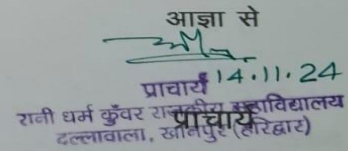 आज्ञा से
14.11.24
प्राचार्य
रानी धर्म कुँवर राजकीय महाविद्यालय
प्राचार्य
दल्लावाला, खानपुर (हरिद्वार)